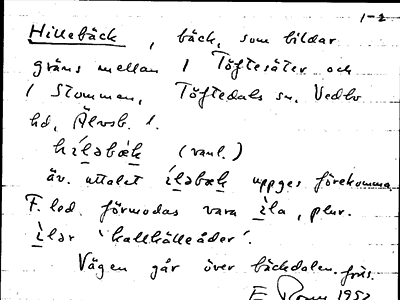 1-2
Hillebäck, bäck, som bildar
gräns mellan 1 Töftesäter och
1 Stommen, Töftedals sn, Vedbo
hd, Älvsb. l.
hìləbæk (vanl.)
äv. uttalet ìləbæk uppges förekomma.
F. led. förmodas vara ìla, plur.
ìlər 'kallkälleåder'.
Vägen går över bäckdalen.
E 1952